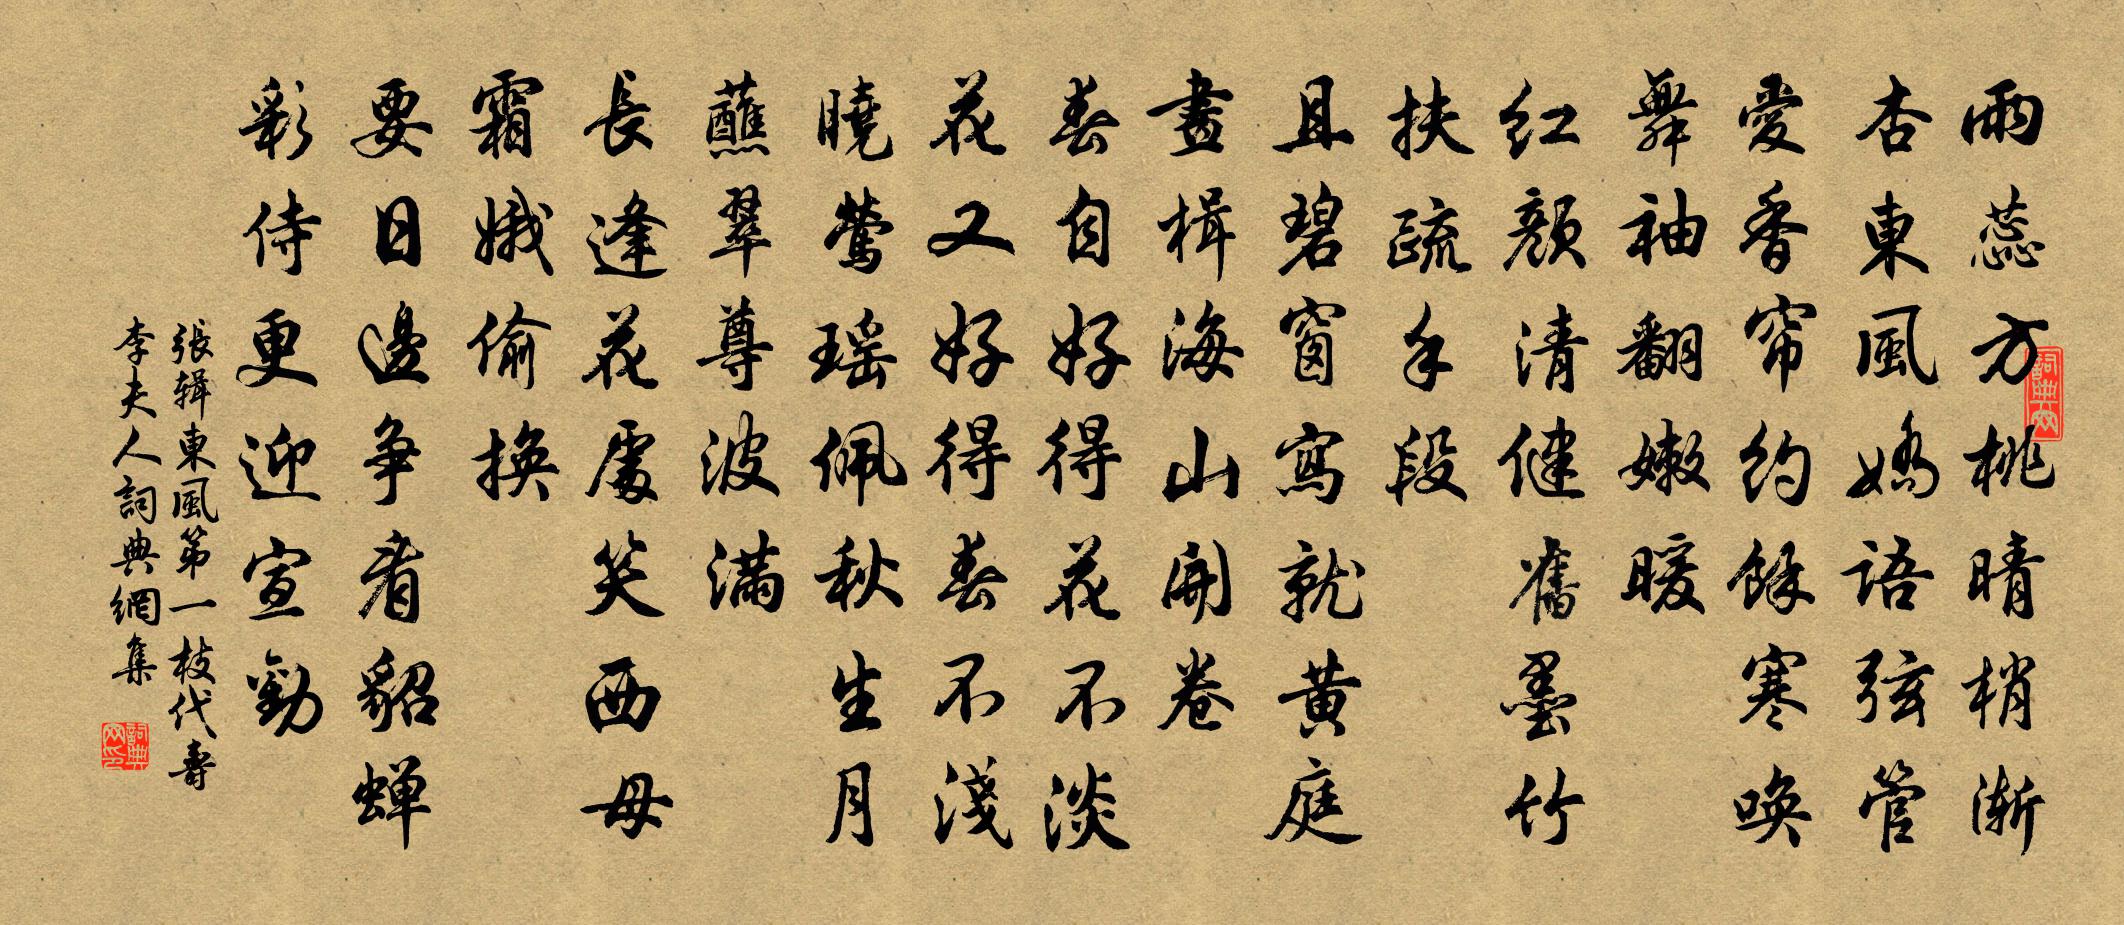 雨蕊方桃晴梢漸
杏東風嬌語弦管
愛香帘約餘寒喚
舞袖翻嫩暖
红顏清健舊墨竹
扶疏手段
且碧窗寫就黄庭
畫楫海山開卷
春自好得花不淡
花又好得春不淺
曉鶯瑶佩秋生月
蘸翠尊波滿
長逢花處笑西母
霜娥偷換
要日邊争看貂蝉
彩侍更迎宣勸
張辑東風第一枝代壽
李夫人詞典網集
詞典网
詞典网印